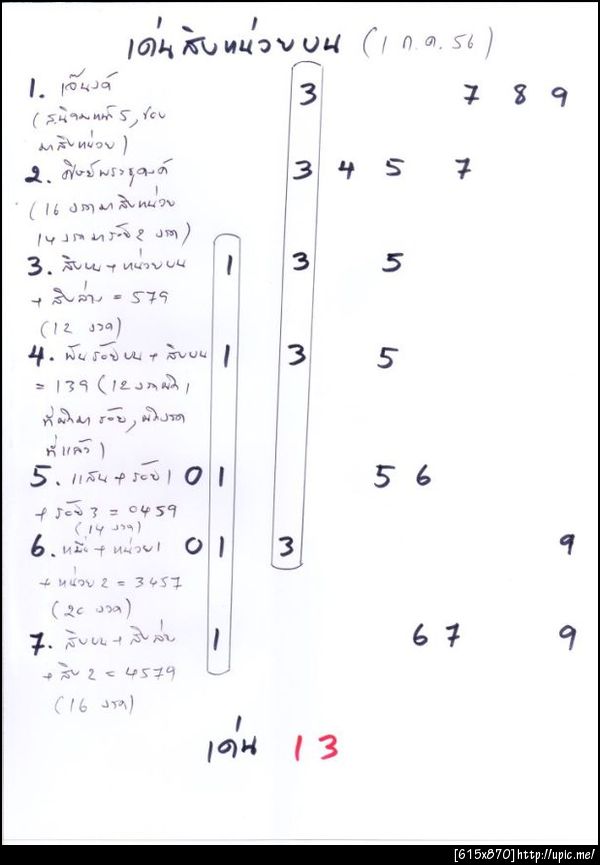 เด่นสิบหน่วยบน (1 ก.ค. 56)
1. เจ๊นงค์ 3 7 8 9
5, ชอบ
มาสิบหน่วย)
2. ศิษย์พระธุดงค์ 3 4 5 7
(16 งวดมาสิบหน่วย
14 งวดมาร้อย 2 งวด)
3. สิบบน + หน่วยบน 1 3 5
+ สิบล่าง = 579
(12 งวด)
4. พันร้อยบน + สิบบน 1 3 5
= 139 (12 งวดผิด 1
ที่ผิดมาร้อย, ผิดงวด
ที่แล้ว)
5. แสน + ร้อย 1 0 1 5 6
+ ร้อย 3 = 0459
(14 งวด)
6. หมื่น + หน่วย 1 0 1 3 9
+ หน่วย 2 = 3457
(20 งวด)
7. สิบบน + สิบล่าง 1 6 7 9
+ สิบ 2 = 4579
(16 งวด)
เด่น 1 3
[615x870]http://upic.me/